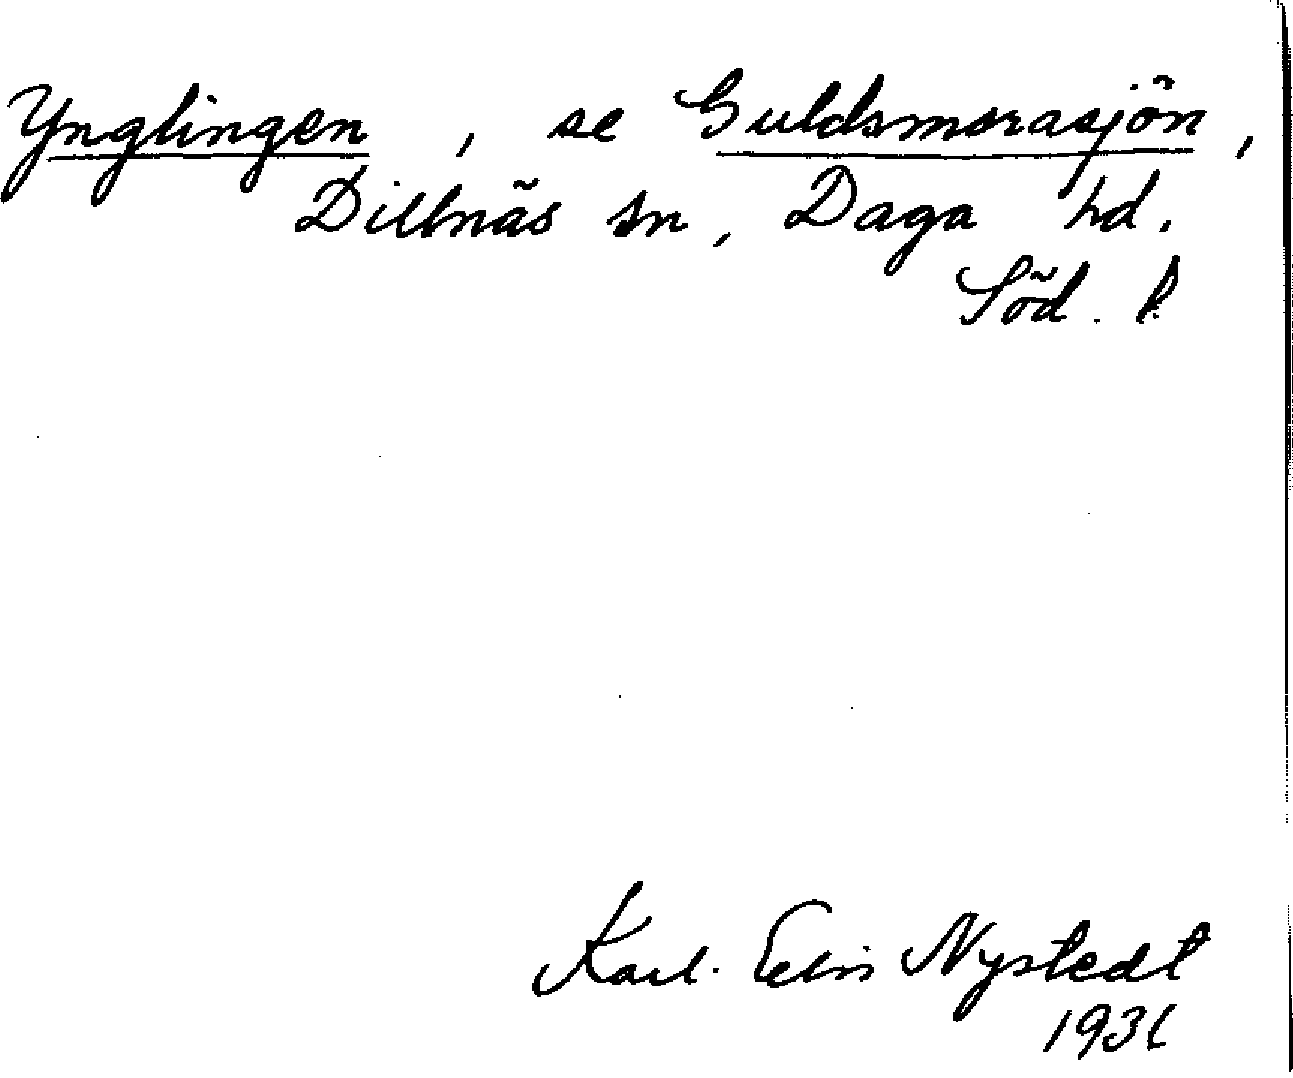 Ynglingen, se Guldsmorasjön,
Dillnäs sn, Daga hd.
Söd. l.
Karl-Elis Nystedt